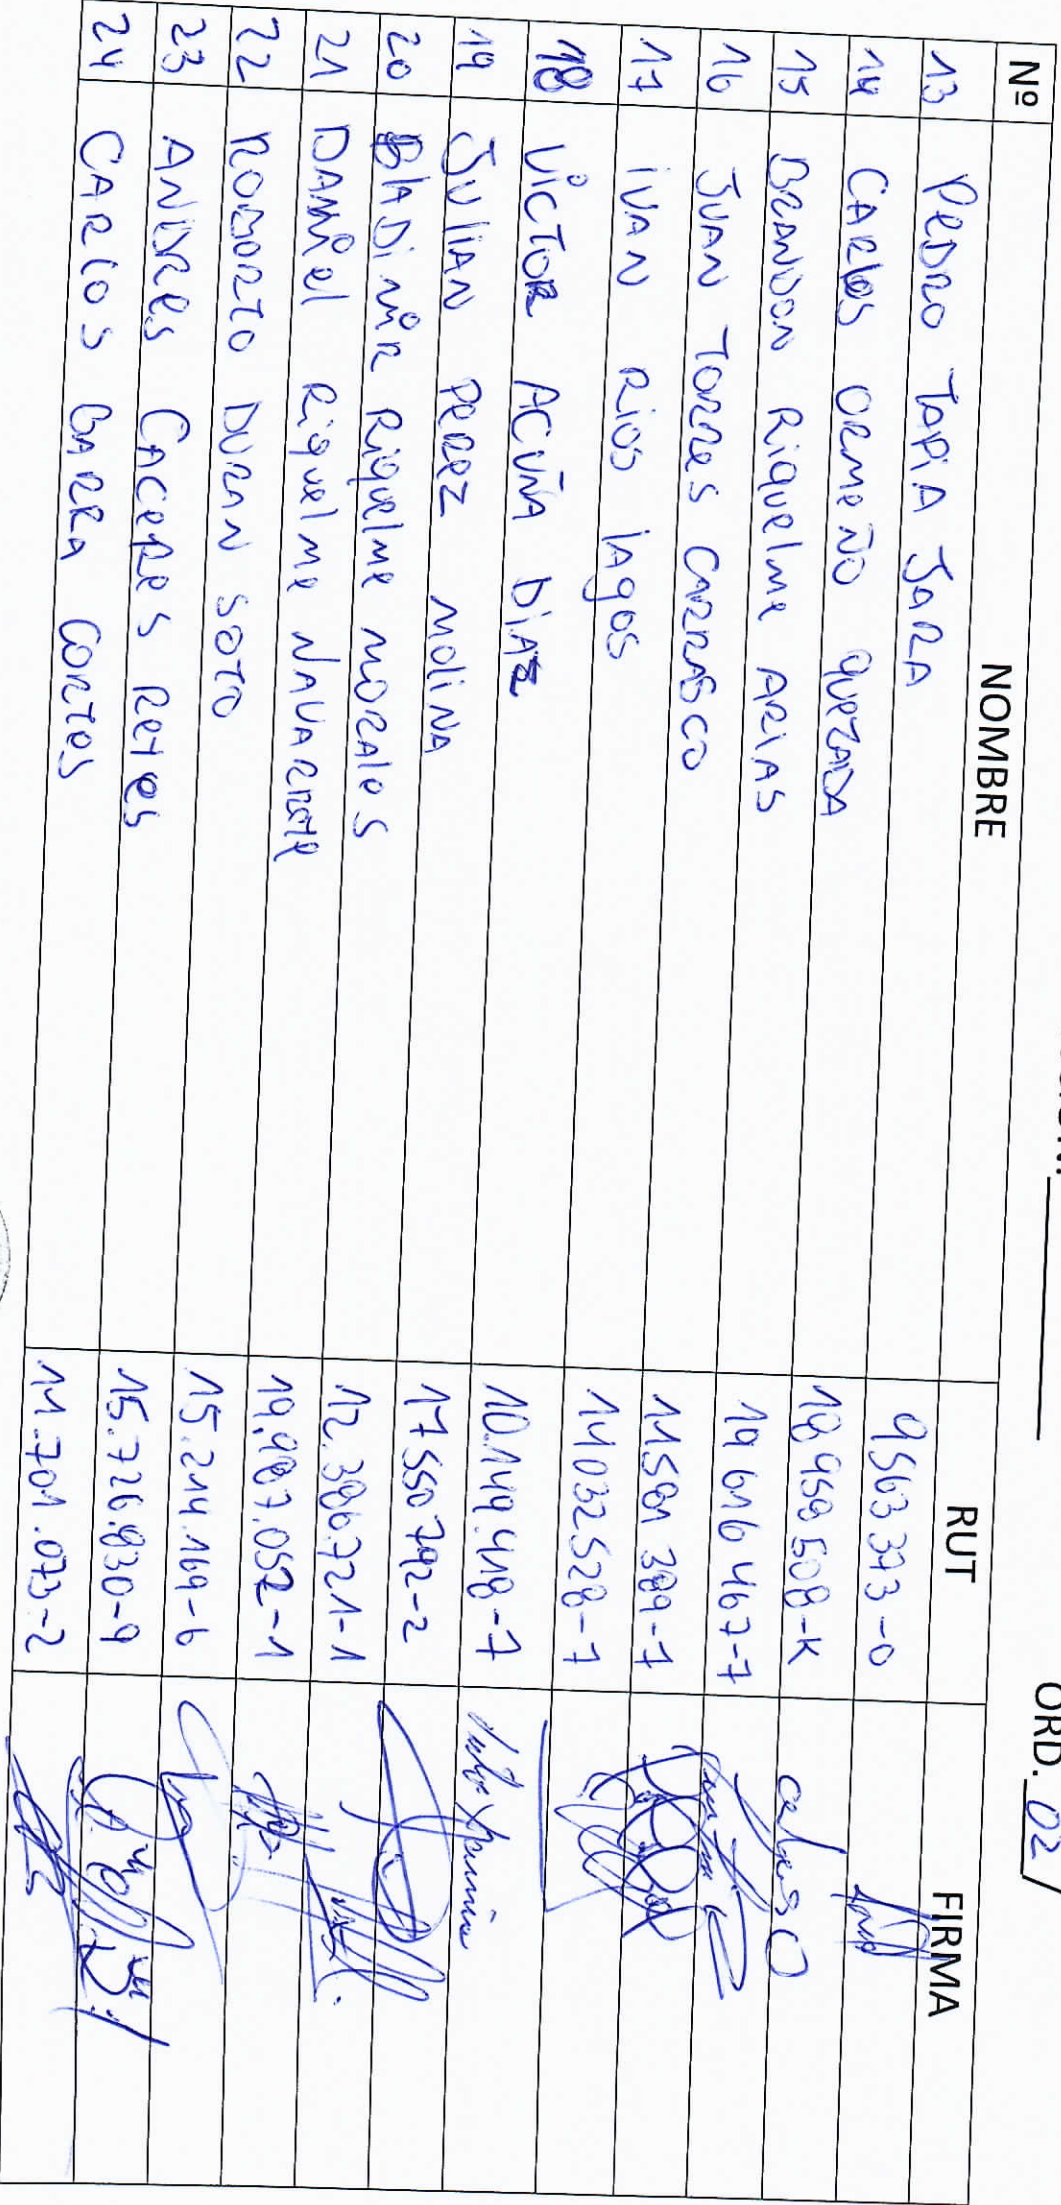 ORD. 02/
Nº NOMBRE RUT FIRMA
13 PEDRO TAPIA JARA 9563373-0
14 CARLOS ORMEÑO QUEZADA 18958508-K
15 BRANDON RIQUELME ARIAS 19616467-7
16 JUAN TORRES CARRASCO 11.581389-7
17 IVAN RIOS LAGOS 14032.528-7
18 VICTOR ACUÑA DIAZ 10.149.418-7
19 JULIAN PEREZ MOLINA 17550792-2
20 BLADIMIR RIQUELME MORALES 12.386.721-1
21 DANIEL RIQUELME NAVARRETE 19.987.057-1
22 ROBERTO DURAN SOTO 15.214.169-6
23 ANDRES CACERES REYES 15.726.830-9
24 CARLOS BARRA CORTES 11.701.073-2